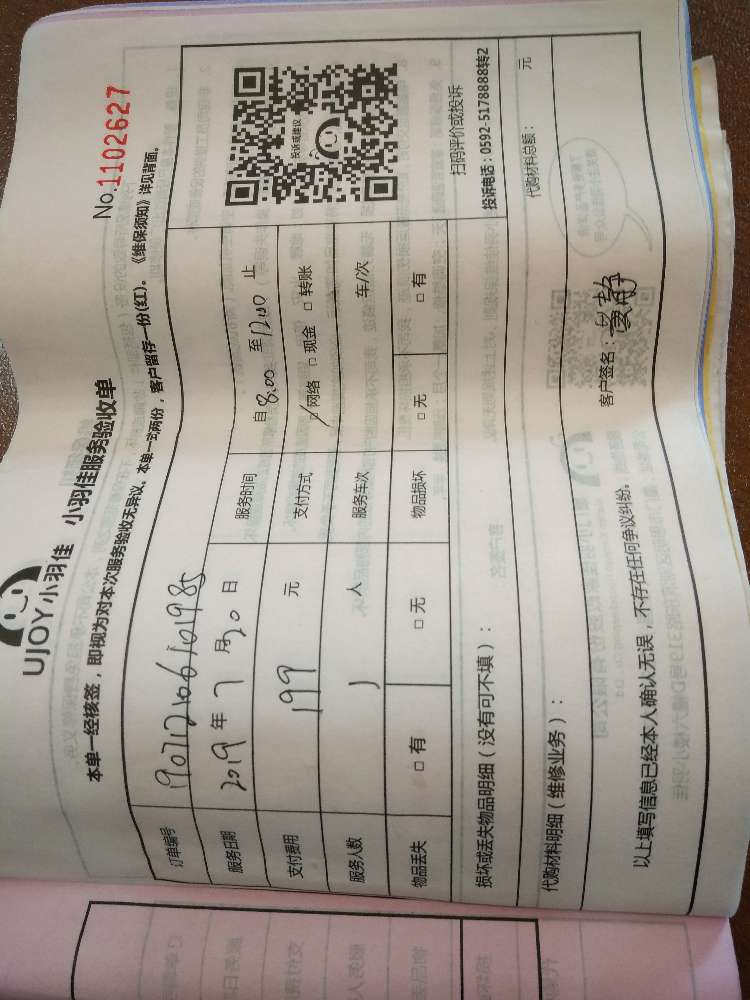 UJOY小羽佳 小羽佳服务验收单
No.1102627
本单一经核签，即视为对本次服务验收无异议。本单一式两份，客户留存一份(红)。《维保须知》详见背面。
订单编号 190712106101985
服务日期 2019 年 7 月 20 日 服务时间 自 8:00 至 12:00 止
支付费用 199 元 支付方式 □网络 □现金 □转账
服务人数 1 人 服务车次 车/次
物品丢失 □有 □无 物品损坏 □无 □有
投诉或建议
扫码评价或投诉
投诉电话：0592-5178888转2
损坏或丢失物品明细（没有可不填）：
代购材料明细（维修业务）： 代购材料总额： 元
以上填写信息已经本人确认无误，不存在任何争议纠纷。 客户签名：